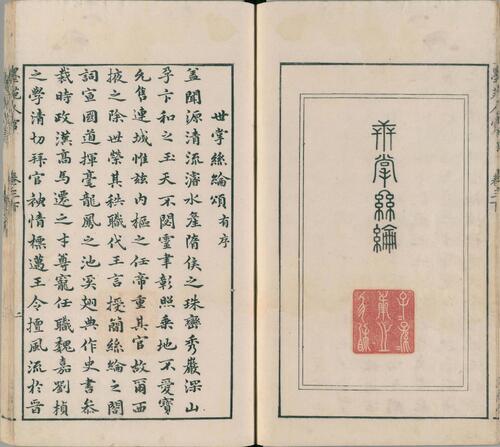 世掌絲綸
世掌絲綸頌有序
蓋聞源清流濬水產隋侯之珠巒秀巖深山
孕卞和之玉天不閟靈聿彰照乘地不愛寶
允售連城惟茲內樞之任帝重其官故爾西
掖之除世榮其秩職代王言授簡絲綸之閣
詞宣國道揮毫龍鳳之池奚翅典作史書叅
裁時政漢高馬遷之才尊寵任職魏嘉劉楨
之學清切拜官神情標邁王令擅風流於晉
卷三下
二